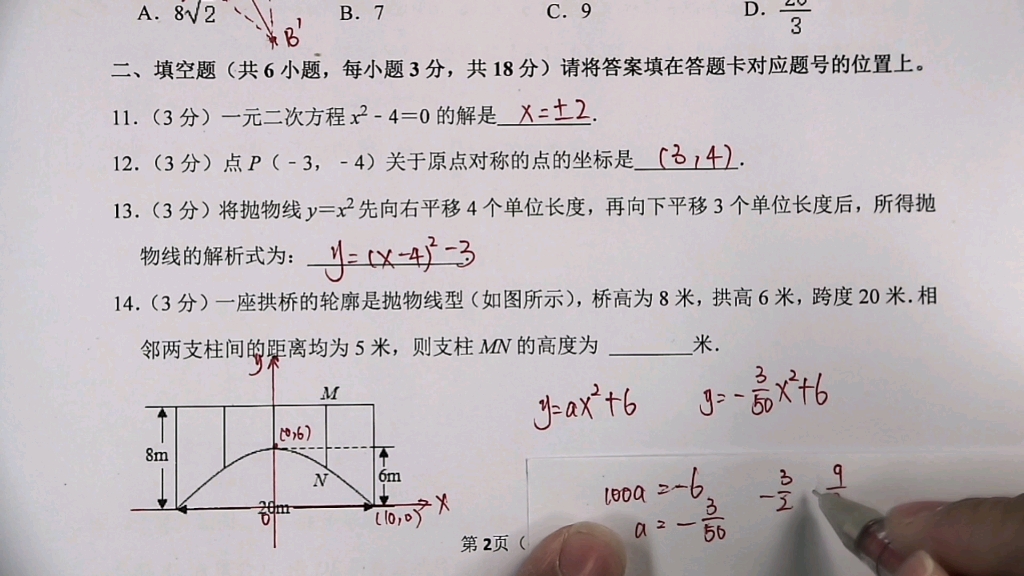 A. 8√2 B. 7 C. 9 D. 20/3
B′
二、填空题（共 6 小题，每小题 3 分，共 18 分）请将答案填在答题卡对应题号的位置上。
11.（3 分）一元二次方程 x²﹣4＝0 的解是 x=±2.
12.（3 分）点 P（﹣3，﹣4）关于原点对称的点的坐标是 (3,4).
13.（3 分）将抛物线 y＝x² 先向右平移 4 个单位长度，再向下平移 3 个单位长度后，所得抛
物线的解析式为： y=(x-4)²-3
14.（3 分）一座拱桥的轮廓是抛物线型（如图所示），桥高为 8 米，拱高 6 米，跨度 20 米．相
邻两支柱间的距离均为 5 米，则支柱 MN 的高度为 ______米．
y
M
y=ax²+6 y=-3/50x²+6
(0,6)
8m
N
6m
100a=-6 -3/2 9
20m
0
(10,0)
x
a=-3/50
第 2页（